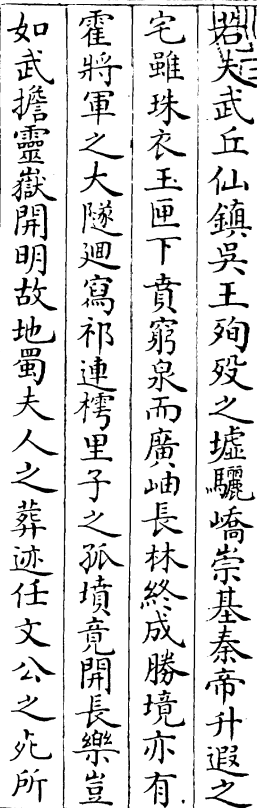 若夫武丘仙鎮吳王殉歿之墟驪嶠崇基秦帝升遐之
宅雖珠衣玉匣下賁窮泉而廣岫長林終成勝境亦有
霍將軍之大隧迴寫祁連樗里子之孤墳竟開長樂豈
如武擔靈嶽開明故地蜀夫人之葬迹任文公之死所